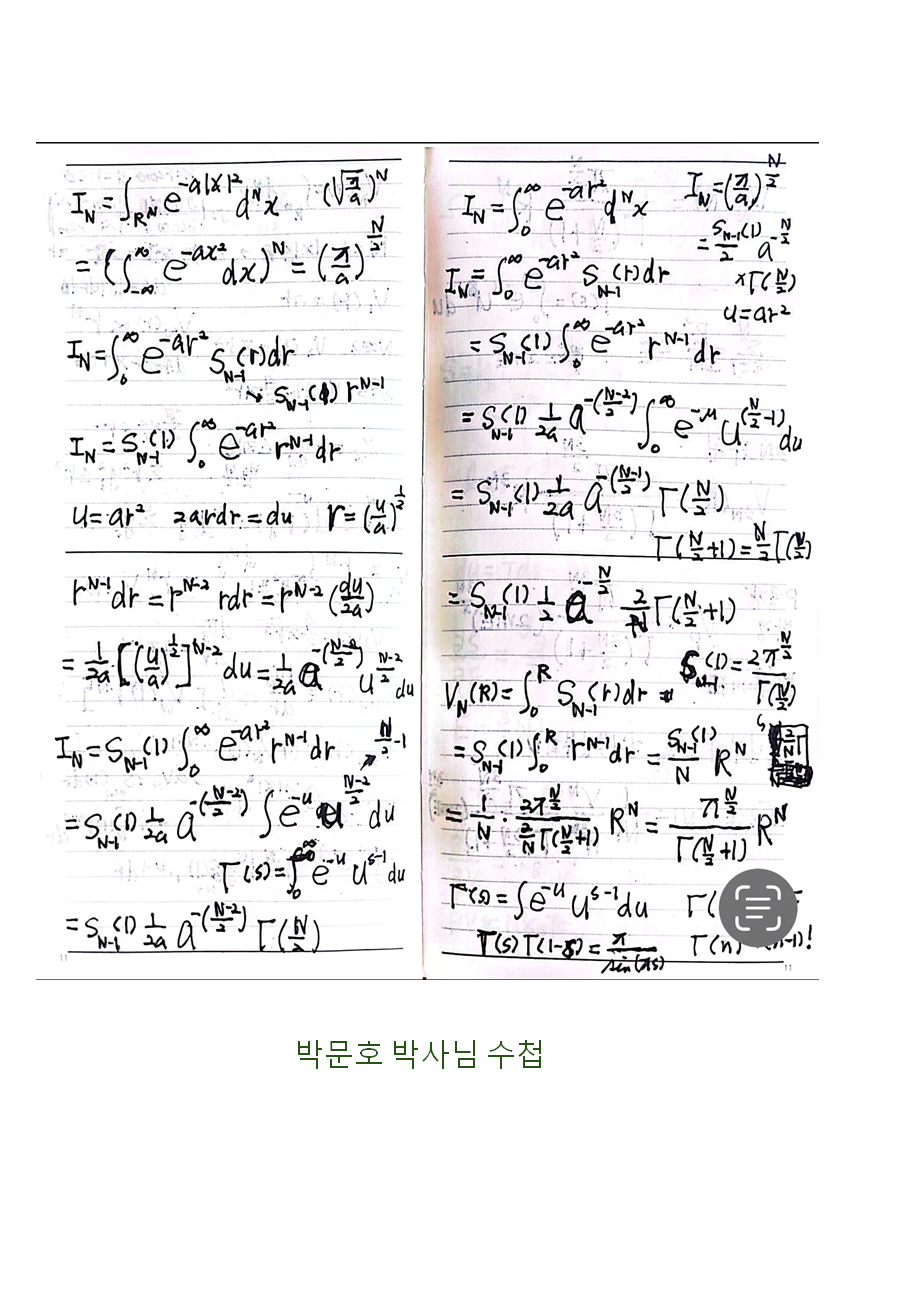 I_N = ∫_{R^N} e^{-a|x|^2} d^N x (√(π/a))^N
= (∫_{-∞}^{∞} e^{-ax^2} dx)^N = (π/a)^{N/2}
I_N = ∫_0^∞ e^{-ar^2} S_{N-1}(r) dr
↘ S_{N-1}(1) r^{N-1}
I_N = S_{N-1}(1) ∫_0^∞ e^{-ar^2} r^{N-1} dr
u = ar^2 2ardr = du r = (u/a)^{1/2}
r^{N-1} dr = r^{N-2} rdr = r^{N-2} (du/2a)
= 1/2a [(u/a)^{1/2}]^{N-2} du = 1/2a a^{-(N-2/2)} u^{N-2/2} du
I_N = S_{N-1}(1) ∫_0^∞ e^{-ar^2} r^{N-1} dr ↗ N/2 -1
= S_{N-1}(1) 1/2a a^{-(N-2/2)} ∫ e^{-u} u^{N-2/2} du
Γ(s) = ∫_0^∞ e^{-u} u^{s-1} du
= S_{N-1}(1) 1/2a a^{-(N-2/2)} Γ(N/2)
11
I_N = ∫_0^∞ e^{-ar^2} d^N x I_N = (π/a)^{N/2}
= S_{N-1}(1)/2 a^{-N/2}
I_N = ∫_0^∞ e^{-ar^2} S_{N-1}(r) dr × Γ(N/2)
u = ar^2
= S_{N-1}(1) ∫_0^∞ e^{-ar^2} r^{N-1} dr
= S_{N-1}(1) 1/2a a^{-(N-2/2)} ∫_0^∞ e^{-u} u^{(N/2 -1)} du
= S_{N-1}(1) 1/2a a^{-(N-1/2)} Γ(N/2)
Γ(N/2 +1) = N/2 Γ(N/2)
= S_{N-1}(1) 1/2 a^{-N/2} 2/N Γ(N/2 +1)
S_{N-1}(1) = 2π^{N/2}/Γ(N/2)
V_N(R) = ∫_0^R S_{N-1}(r) dr =
= S_{N-1}(1) ∫_0^R r^{N-1} dr = S_{N-1}(1)/N R^N
= 1/N · 2π^{N/2}/(2/N Γ(N/2 +1)) R^N = π^{N/2}/Γ(N/2 +1) R^N
Γ(s) = ∫ e^{-u} u^{s-1} du Γ(
Γ(s) Γ(1-s) = π/sin(πs) Γ(n) -1)!
11
박문호 박사님 수첩